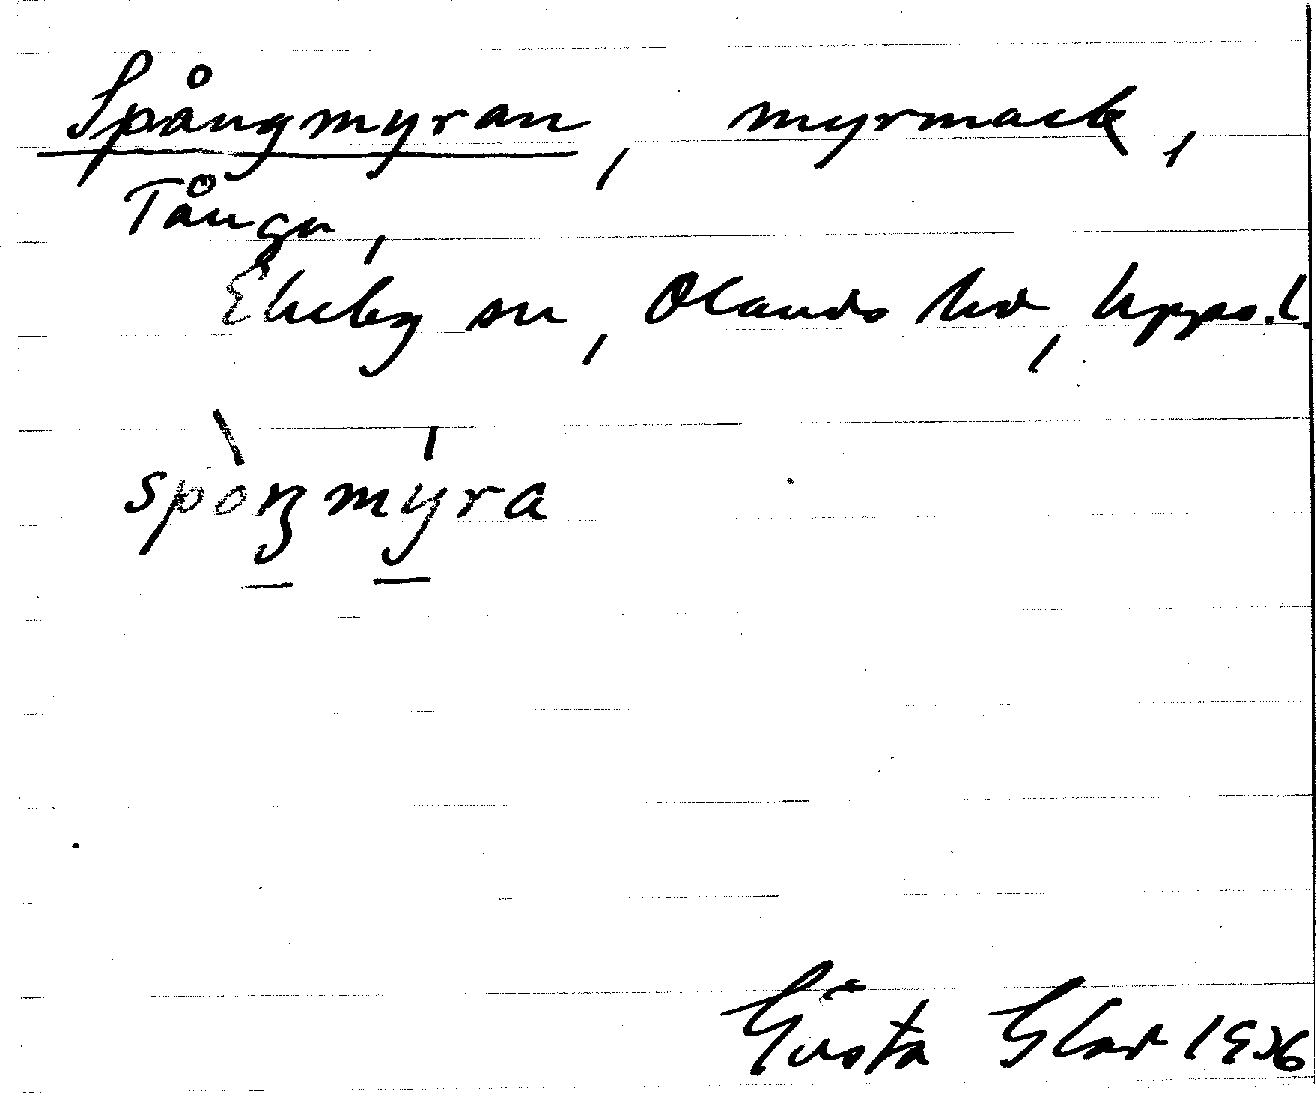 Spångmyran, myrmack,
Tånga,
Ekeby sn, Olands hd, Upps.l.
spòŋmýra
Gösta Glad 1936